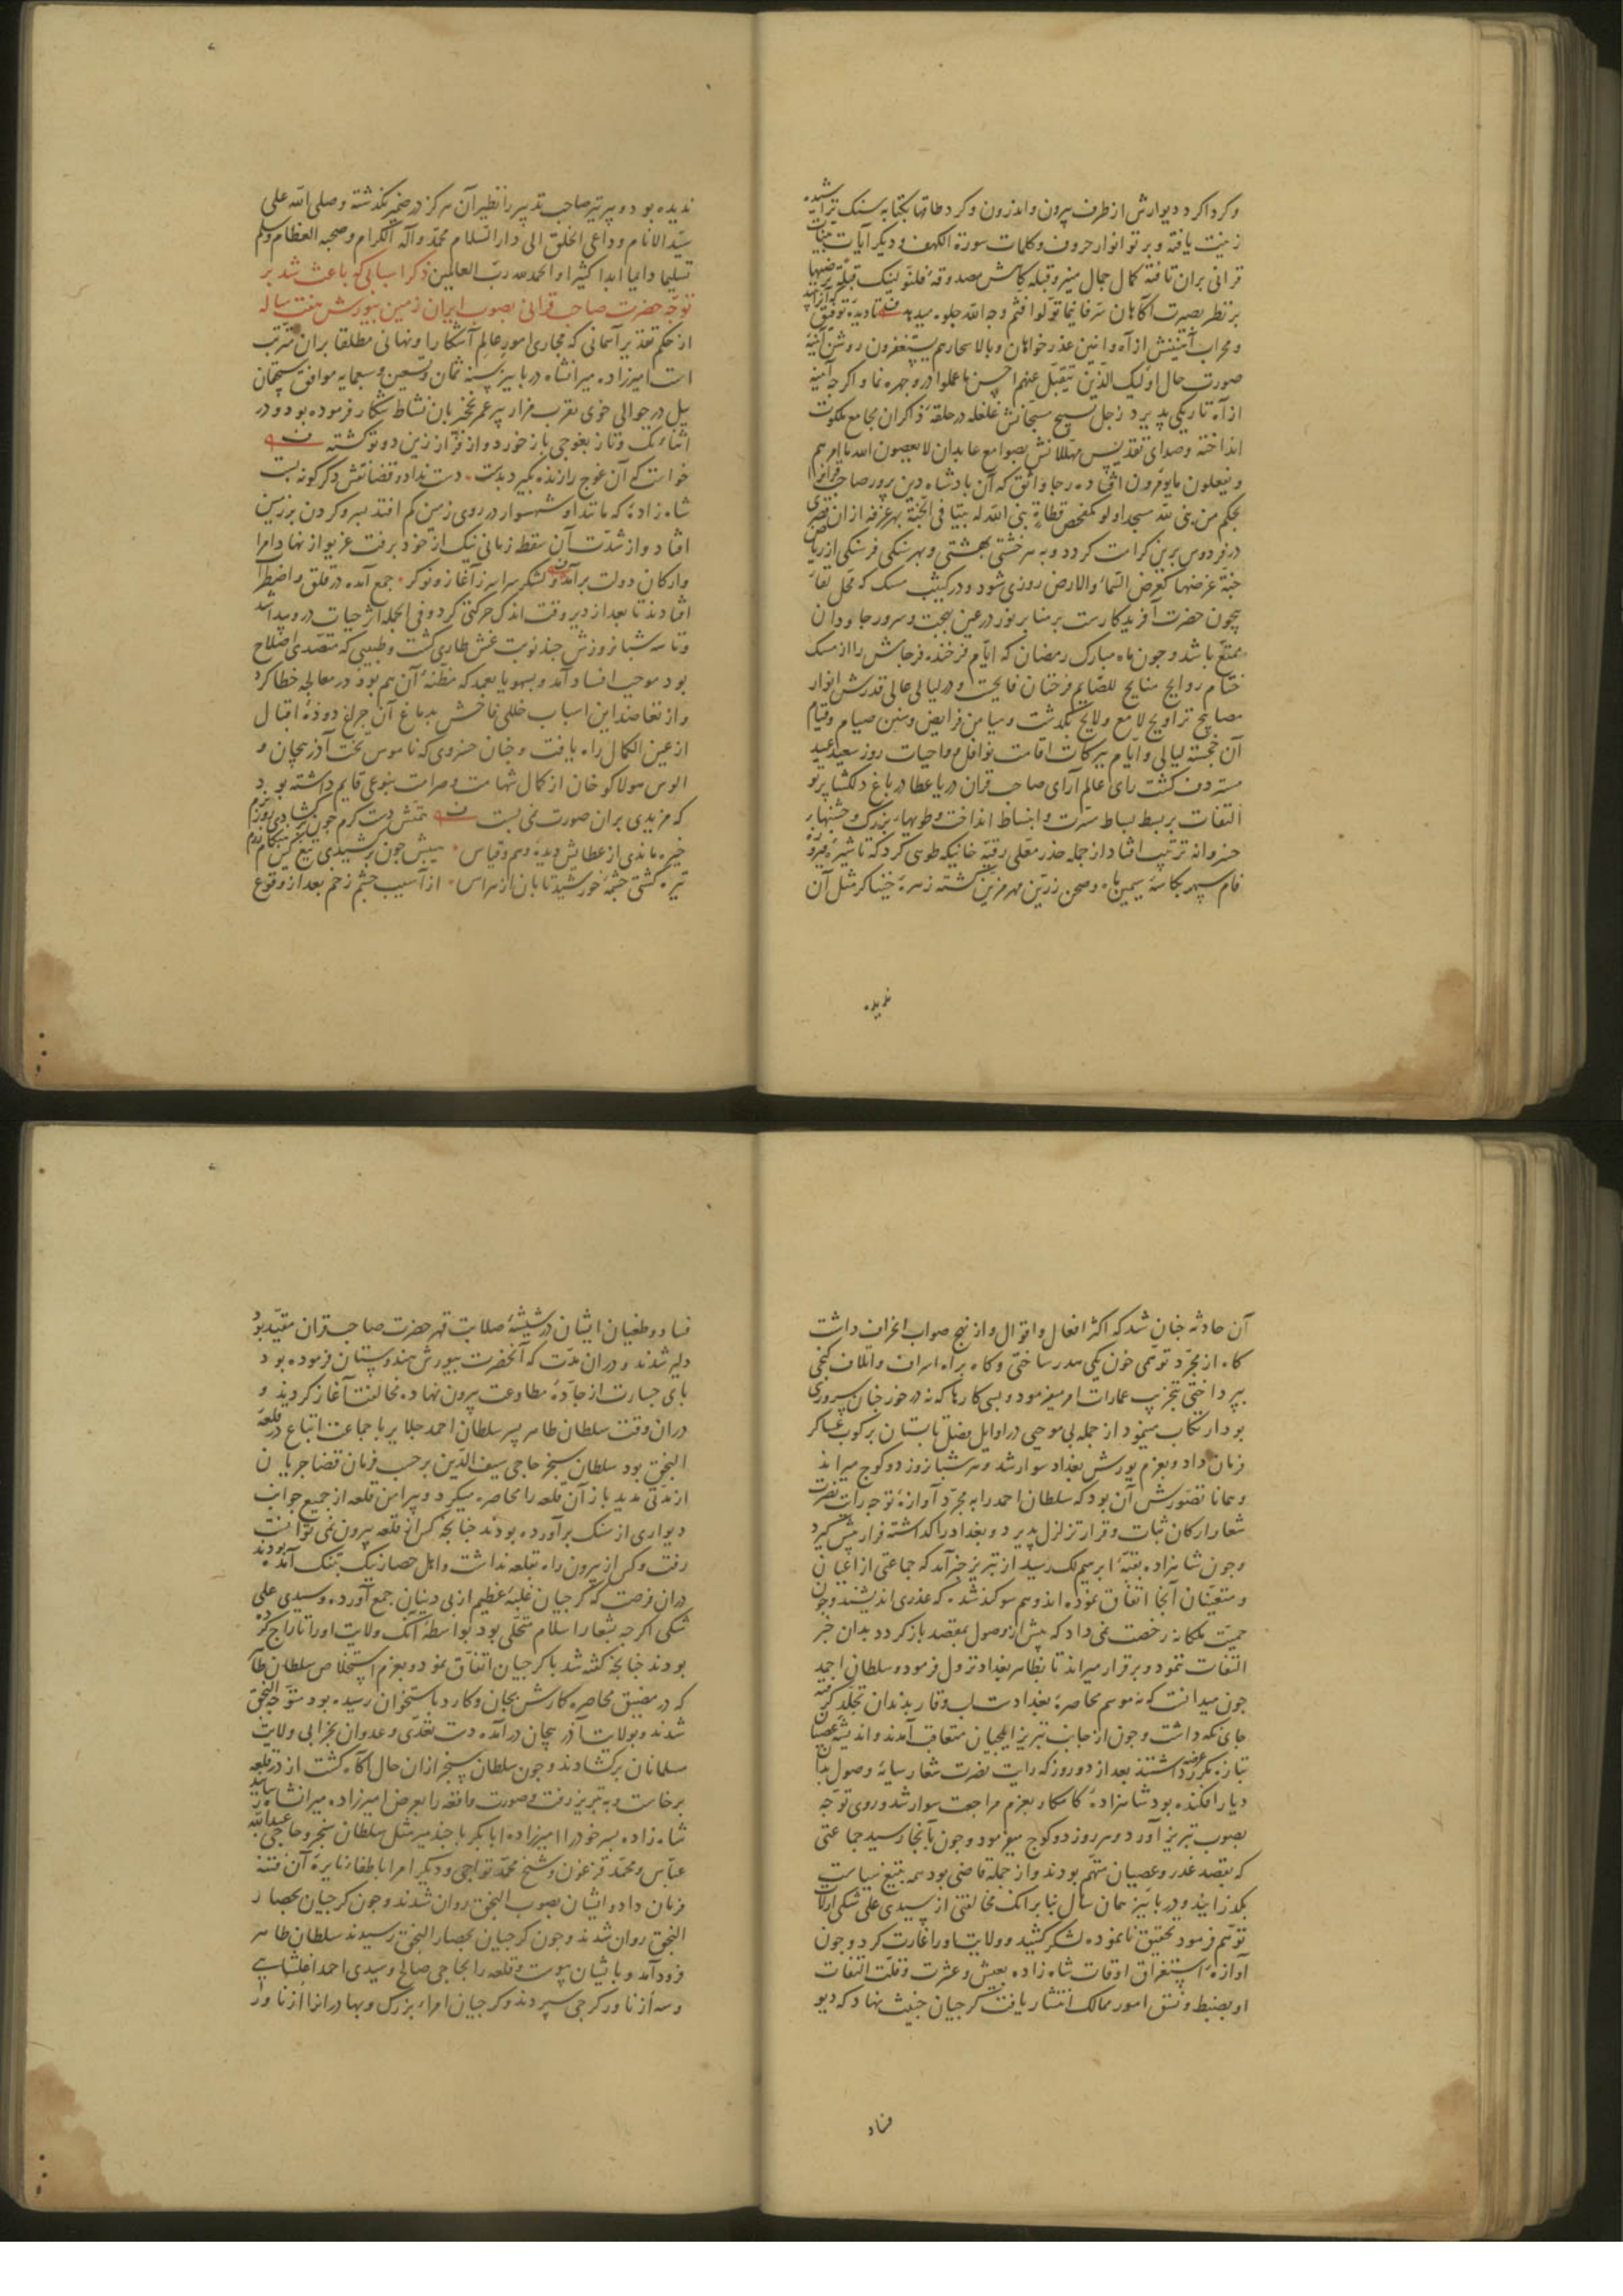 وکرد اکرد دیوارش از طرف بیرون و اندرون وکرد طاقها بکتابه سنک تراشیده
زینت یافته و پرتو انوار حروف و کلمات سورة الکهف و دیکر آیات بینات
قرانی بران تافته کمال جمال منبر و قبله کاهش مصدوقهٔ فلنولینک قبلة ترضیها
بر نظر بصیرت آکاهان سر فاینما تولوا فثم وجه الله جلوه میدهد تا دیدهٔ توفیق
و محراب آیینش از آه و انین عذر خواهان و بالاسحار هم یستغفرون روشن آینهٔ
صورت حال اولیک الذین نتقبل عنهم احسن ما عملوا درو چهره نما و اکرچه آینه
از آه تاریکی پذیرد زجل تسبیح مسبحانش غلغله در حلقهٔ ذاکران مجامع ملکوت
انداخته و صدای تقدیس مهللانش بصوامع عابدان لا یعصون الله ما امرهم
و یفعلون ما یؤمرون افتاده رجا واثق که آن پادشاه دین پرور صاحب قرانرا
بحکم من بنی لله مسجدا ولو کمفحص قطاة بنی الله له بیتا فی الجنة بهر غرفه ازان قصری
در فردوس برین کرامت کردد و به هر خشتی بهشتی و بهر سنکی فرسنکی از ریاض
جنة عرضها کعرض السماء والارض روزی شود و در کثیب مسک که محل لقاء
بیچون حضرت آفریدکارست بر منابر نور در عین بهجت و سرور جاودان
ممتع باشد و چون ماه مبارک رمضان که ایام فرخنده فرجامش را از مسک
ختام روایح منایح للصایم فرحتان فایحست و در لیالی عالی قدرش انوار
مصابیح تراویح لامع و لایح بکذشت و میامن فرایض و سنن صیام و قیام
آن خجسته لیالی و ایام ببرکات اقامت نوافل و واجبات روز سعید عید
مقرون کشت رای عالم آرای صاحب قران دریا عطا در باغ دلکشا پرتو
التفات بر بسط بساط مسرت و انبساط انداخت و طویهاء بزرک و جشنهاء
خسروانه ترتیب افتاد از جمله خدر معلی رقیه خانیکه طوسی کرد که تا شیرهٔ فیروزه
فام سپهر بکاسهٔ سیمین ماه و صحن زرین مهر مزین کشته زهرهٔ خنیاکر مثل آن
ندیده
ندیده بود و پیر تیر صاحب تدبیر را نظیر آن هرکز در ضمیر نکذشته و صلی الله علی
سید الانام و داعی الخلق الی دار السلام محمد و آله الکرام و صحبه العظام و سلم
تسلیما دایما ابدا کثیرا والحمد لله رب العالمین ذکر اسبابی که باعث شد بر
توجه حضرت صاحب قرانی بصوب ایران زمین بیورش هفت ساله
از حکم تقدیر آسمانی که مجاری امور عالم آشکارا و نهانی مطلقا بران مترتب
است امیرزاده میرانشاه در پاییز سنه ثمان و تسعین و سبعمایه موافق سیچقان
ییل در حوالی خوی بقرب مزار پیر عمر نخجیربان نشاط شکار فرموده بود و در
اثناء تک و تاز بغوجی باز خورد و از فراز زین دو تو کشته
خواست که آن غوج را زنده بکیرد بدست • دست نداد و قضا نقش دکر کونه بست
شاه زاده که مانند او شهسوار در روی زمین کم افتد بسر و کردن بر زمین
افتاد و از شدت آن سقطه زمانی نیک از خود برفت غریو از نهاد امرا
و ارکان دولت برآمد و لشکر سراسر ز آغا ز و نوکر • جمع آمده در قلق و اضطراب
افتادند تا بعد از دیر وقت اندک حرکتی کرد و فی الجمله اثر حیات درو پیدا شد
و تا سه شبانروزش چند نوبت غش طاری کشت و طبیبی که متصدی اصلاح
بود موجب افساد آمد و بسهو یا بعمد که مظنهٔ آن هم بود در معالجه خطا کرد
و از تعاضد این اسباب خللی فاحش بدماغ آن چراغ دودهٔ اقبال
از عین الکمال راه یافت و چنان خسروی که ناموس تخت آذربیجان و
الوس هولاکو خان از کمال شهامت و صرامت بنوعی قایم داشته بود
که مزیدی بران صورت نمی بست همتش دست کرم چون برکشادی روز بزم
خیره ماندی از عطایش دیدهٔ وهم و قیاس • هیبتش چون برکشیدی تیغ کین هنکام رزم
تیره کشتی چشمهٔ خورشید تابان از هراس • از آسیب چشم زخم بعد از وقوع
آن حادثه چنان شد که اکثر افعال و اقوال او از نهج صواب انحراف داشت
کاه از مجرد توهمی خون یکی هدر ساختی و کاه براه اسراف و اتلاف کنجی
بپرداختی بتخریب عمارات امر میفرمود و بسی کارها که نه در خور چنان سروری
بود ارتکاب مینمود از جمله بی موجبی در اوایل فصل تابستان برکوب عساکر
فرمان داد و بعزم یورش بغداد سوار شد و هر شبانروز دو کوچ میراند
و همانا تصورش آن بود که سلطان احمد را به مجرد آوازهٔ توجه رایت نصرت
شعار ارکان ثبات و قرار تزلزل پذیرد و بغداد را کذاشته فرار پیش کیرد
و چون شاهزاده بقبهٔ ابرهیم لک رسید از تبریز خبر آمد که جماعتی از اعیان
و متعینان آنجا اتفاق نموده اند و هم سوکند شده که غدری اندیشند و چون
حمیت ملکانه رخصت نمی داد که پیش از وصول بمقصد باز کردد بدان خبر
التفات ننمود و برقرار میراند تا بظاهر بغداد نزول فرمود و سلطان احمد
چون میدانست که نه موسم محاصرهٔ بغدادست لب وقار بدندان تجلد کرفته
جای نکه داشت و چون از جانب تبریز ایلچیان متعاقب آمدند و اندیشهٔ عصیان
تبارزه مکرر عرضه داشتند بعد از دو روز که رایت نصرت شعار سایهٔ وصول بدان
دیار افکنده بود شاهزادهٔ کامکار بعزم مراجعت سوار شد و روی توجه
بصوب تبریز آورد و هر روز دو کوچ میفرمود و چون بآنجا رسید جماعتی
که بقصد غدر و عصیان متهم بودند و از جمله قاضی بود همه بتیغ سیاست
بکذرانید و در پاییز همان سال بنابر آنک مخالفتی از سیدی علی شکی ارلات
توهم فرمود تحقیق نانموده لشکر کشید و ولایت او را غارت کرد و چون
آوازهٔ استغراق اوقات شاه زاده بعیش و عشرت و قلت التفات
او بضبط و نسق امور ممالک انتشار یافت کرجیان خبیث نهاد که دیو
فساد
فساد و طغیان ایشان در شیشهٔ صلابت قهر حضرت صاحب قران مقید بود
دلیر شدند و دران مدت که آنحضرت بیورش هندوستان فرموده بود
پای جسارت از جادهٔ مطاوعت بیرون نهاده مخالفت آغاز کردند و
دران وقت سلطان طاهر پسر سلطان احمد جلایر با جماعت اتباع در قلعهٔ
النجق بود سلطان سنجر حاجی سیف الدین برحسب فرمان قضا جریان
از مدتی مدید باز آن قلعه را محاصره میکرد و پیرامن قلعه از جمیع جوانب
دیواری از سنک برآورده بودند چنانچه کس از قلعه بیرون نمی توانست
رفت و کس از بیرون راه بقلعه نداشت و اهل حصار نیک بتنک آمده بودند
دران فرصت که کرجیان غلبهٔ عظیم از بی دینان جمع آورده و سیدی علی
شکی اکرچه بشعار اسلام متحلی بود بواسطهٔ آنک ولایت او را تاراج کرده
بودند چنانچه کفته شد با کرجیان اتفاق نمود و بعزم استخلاص سلطان طاهر
که در مضیق محاصره کارش بجان و کارد باستخوان رسیده بود متوجه النجق
شدند و بولایت آذربیجان درآمده دست تعدی و عدوان بخرابی ولایت
مسلمانان برکشادند و چون سلطان سنجر ازان حال آکاه کشت از در قلعه
برخاست و به تبریز رفت و صورت واقعه را بعرض امیرزاده میرانشاه رسانید
شاه زاده پسر خود را امیرزاده ابابکر با چند میر مثل سلطان سنجر و حاجی عبدالله
عباس و محمد قزغون و شیخ محمد تواچی و دیکر امرا باطفاء نایرهٔ آن فتنه
فرمان داد و ایشان بصوب النجق روان شدند و چون کرجیان بحصار
النجق روان شدند و چون کرجیان بحصار النجق رسیدند سلطان طاهر
فرود آمد و بایشان پیوست و قلعه را بحاجی صالح و سیدی احمد اغلشایی
و سه ازناور کرجی سپردند و کرجیان امراء بزرک و بهادرانرا ازناور